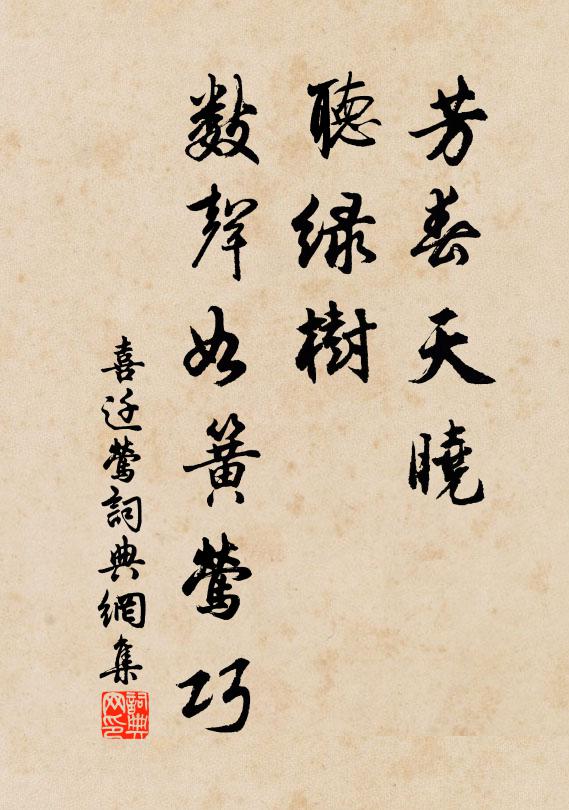 芳春天曉
聽緑樹
數聲如簧鶯巧
喜迁鶯詞典網集
詞典网印